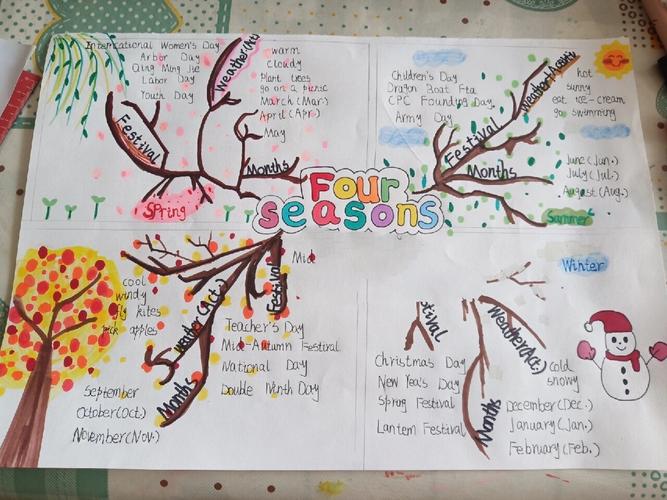 International Women's Day
Arbor Day
Qing Ming Jie
Labor Day
Youth Day
Festival
Weather(Act.)
warm
cloudy
plant trees
go on a picnic
March (Mar.)
April (Apr.)
May
Months
Spring
Children's Day
Dragon Boat Fta
CPC Founding Day
Army Day
Festival
Months
hot
sunny
eat ice-cream
go swimming
June (Jun.)
July (Jul.)
August (Aug.)
Summer
Four
seasons
cool
windy
fly kites
pick apples
Weather (Act.)
Festival
Mid
Teacher's Day
Mid-Autumn Festival
National Day
Double Ninth Day
Months
September
October (Oct.)
November (Nov.)
Winter
stival
Weather(Act.)
cold
snowy
Christmas Day
New Yea's Day
Spring Festival
Lantern Festival
Months
December (Dec.)
January (Jan.)
February (Feb.)